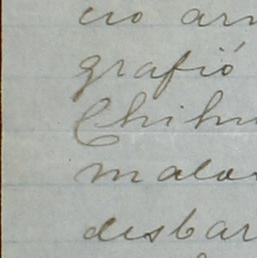 cio arm
grafió
Chihu
malas
desbar